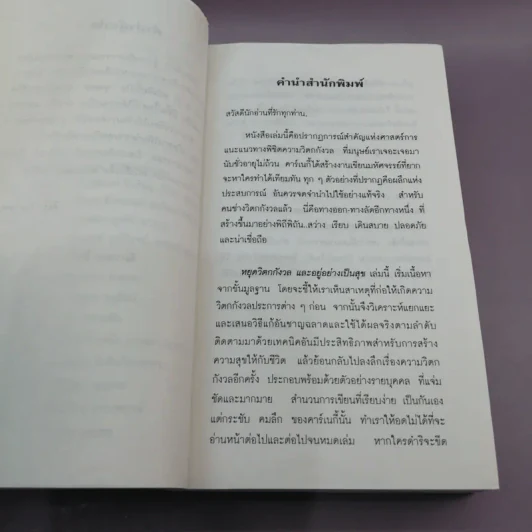 คำนำสำนักพิมพ์
สวัสดีนักอ่านที่รักทุกท่าน.
หนังสือเล่มนี้คือปรากฏการณ์สำคัญแห่งศาสตร์การ
แนะแนวทางพิชิตความวิตกกังวล ที่มนุษย์เราเจอะเจอมา
นับชั่วอายุไม่ถ้วน คาร์เนกี้ได้สร้างงานเขียนมหัศจรรย์ที่ยาก
จะหาใครทำได้เทียมทัน ทุก ๆ ตัวอย่างที่ปรากฏคือผลึกแห่ง
ประสบการณ์ อันควรจดจำนำไปใช้อย่างแท้จริง สำหรับ
คนช่างวิตกกังวลแล้ว นี่คือทางออก-ทางลัดอีกทางหนึ่ง ที่
สร้างขึ้นมาอย่างพิถีพิถัน..สว่าง เรียบ เดินสบาย ปลอดภัย
และน่าเชื่อถือ
หยุดวิตกกังวล และอยู่อย่างเป็นสุข เล่มนี้ เริ่มเนื้อหา
จากขั้นมูลฐาน โดยจะชี้ให้เราเห็นสาเหตุที่ก่อให้เกิดความ
วิตกกังวลประการต่าง ๆ ก่อน จากนั้นจึงวิเคราะห์แยกแยะ
และเสนอวิธีแก้อันชาญฉลาดและใช้ได้ผลจริงตามลำดับ
ติดตามมาด้วยเทคนิคอันมีประสิทธิภาพสำหรับการสร้าง
ความสุขให้กับชีวิต แล้วย้อนกลับไปลงลึกเรื่องความวิตก
กังวลอีกครั้ง ประกอบพร้อมด้วยตัวอย่างรายบุคคล ที่แจ่ม
ชัดและมากมาย สำนวนการเขียนที่เรียบง่าย เป็นกันเอง
แต่กระชับ คมลึก ของคาร์เนกี้นั้น ทำเราให้อดไม่ได้ที่จะ
อ่านหน้าต่อไปและต่อไปจนหมดเล่ม หากใครดำริจะขีด